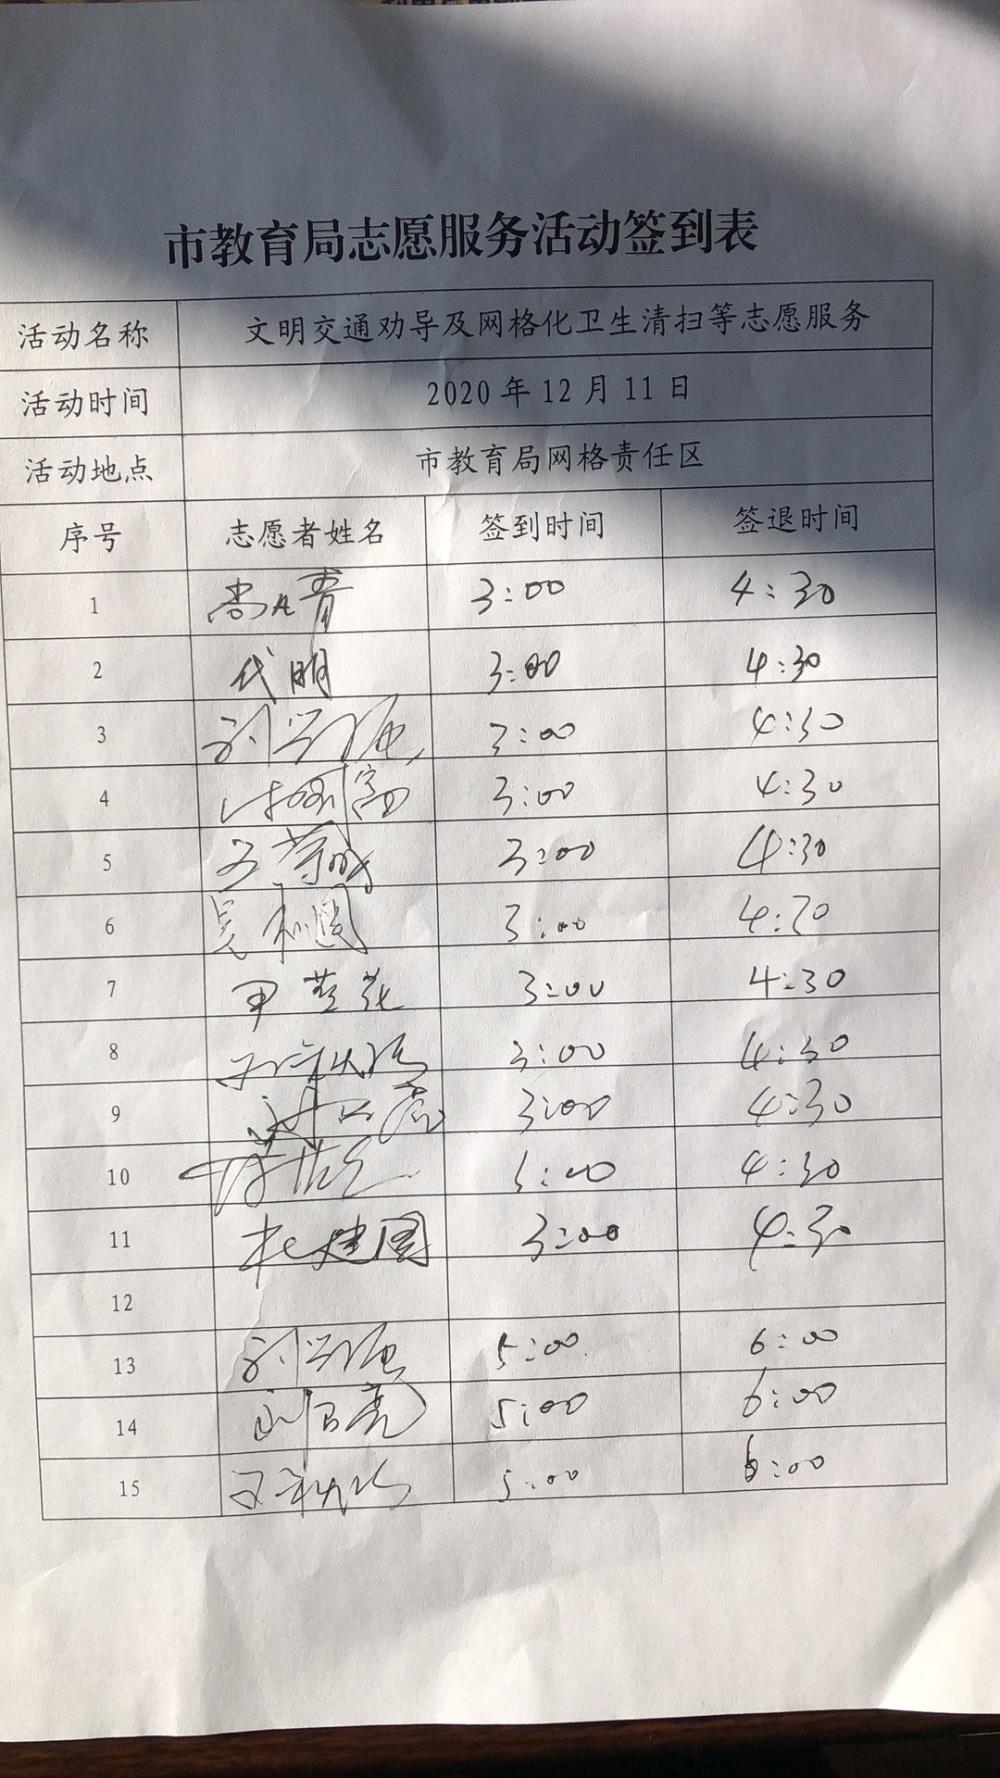 市教育局志愿服务活动签到表
活动名称 文明交通劝导及网格化卫生清扫等志愿服务
活动时间 2020年12月11日
活动地点 市教育局网格责任区
序号 志愿者姓名 签到时间 签退时间
1 3:00 4:30
2 代明 3:00 4:30
3 3:00 4:30
4 3:00 4:30
5 3:00 4:30
6 3:00 4:30
7 3:00 4:30
8 3:00 4:30
9 3:00 4:30
10 3:00 4:30
11 杜建国 3:00 4:30
12
13 5:00 6:00
14 5:00 6:00
15 5:00 6:00